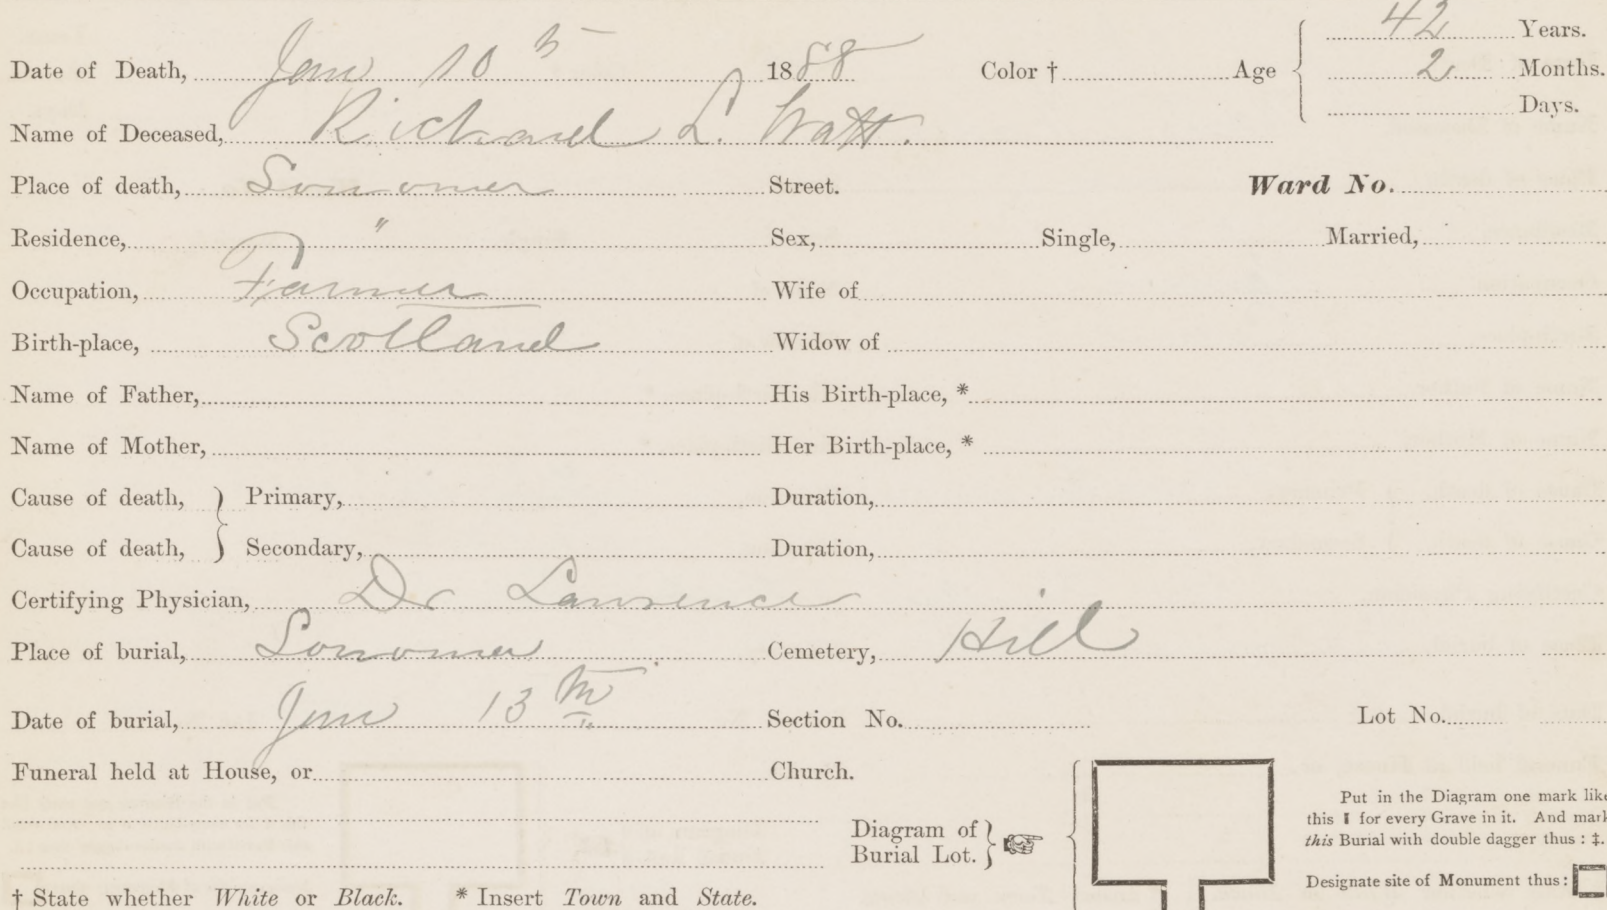 Date of Death, Jan 10 th 1888 Color † Age 42 Years.
2 Months.
Days.
Name of Deceased, Richard L. Watt.
Place of death, Sonoma Street. Ward No.
Residence, " Sex, Single, Married,
Occupation, Farmer Wife of
Birth-place, Scotland Widow of
Name of Father, His Birth-place, *
Name of Mother, Her Birth-place, *
Cause of death, } Primary, Duration,
Cause of death, } Secondary, Duration,
Certifying Physician, Dr Lawrence
Place of burial, Sonoma Cemetery, Hill
Date of burial, Jan 13 th Section No. Lot No.
Funeral held at House, or Church.
Diagram of
Burial Lot.
Put in the Diagram one mark like
this ⫯ for every Grave in it. And mark
this Burial with double dagger thus : ‡.
Designate site of Monument thus :
† State whether White or Black. * Insert Town and State.